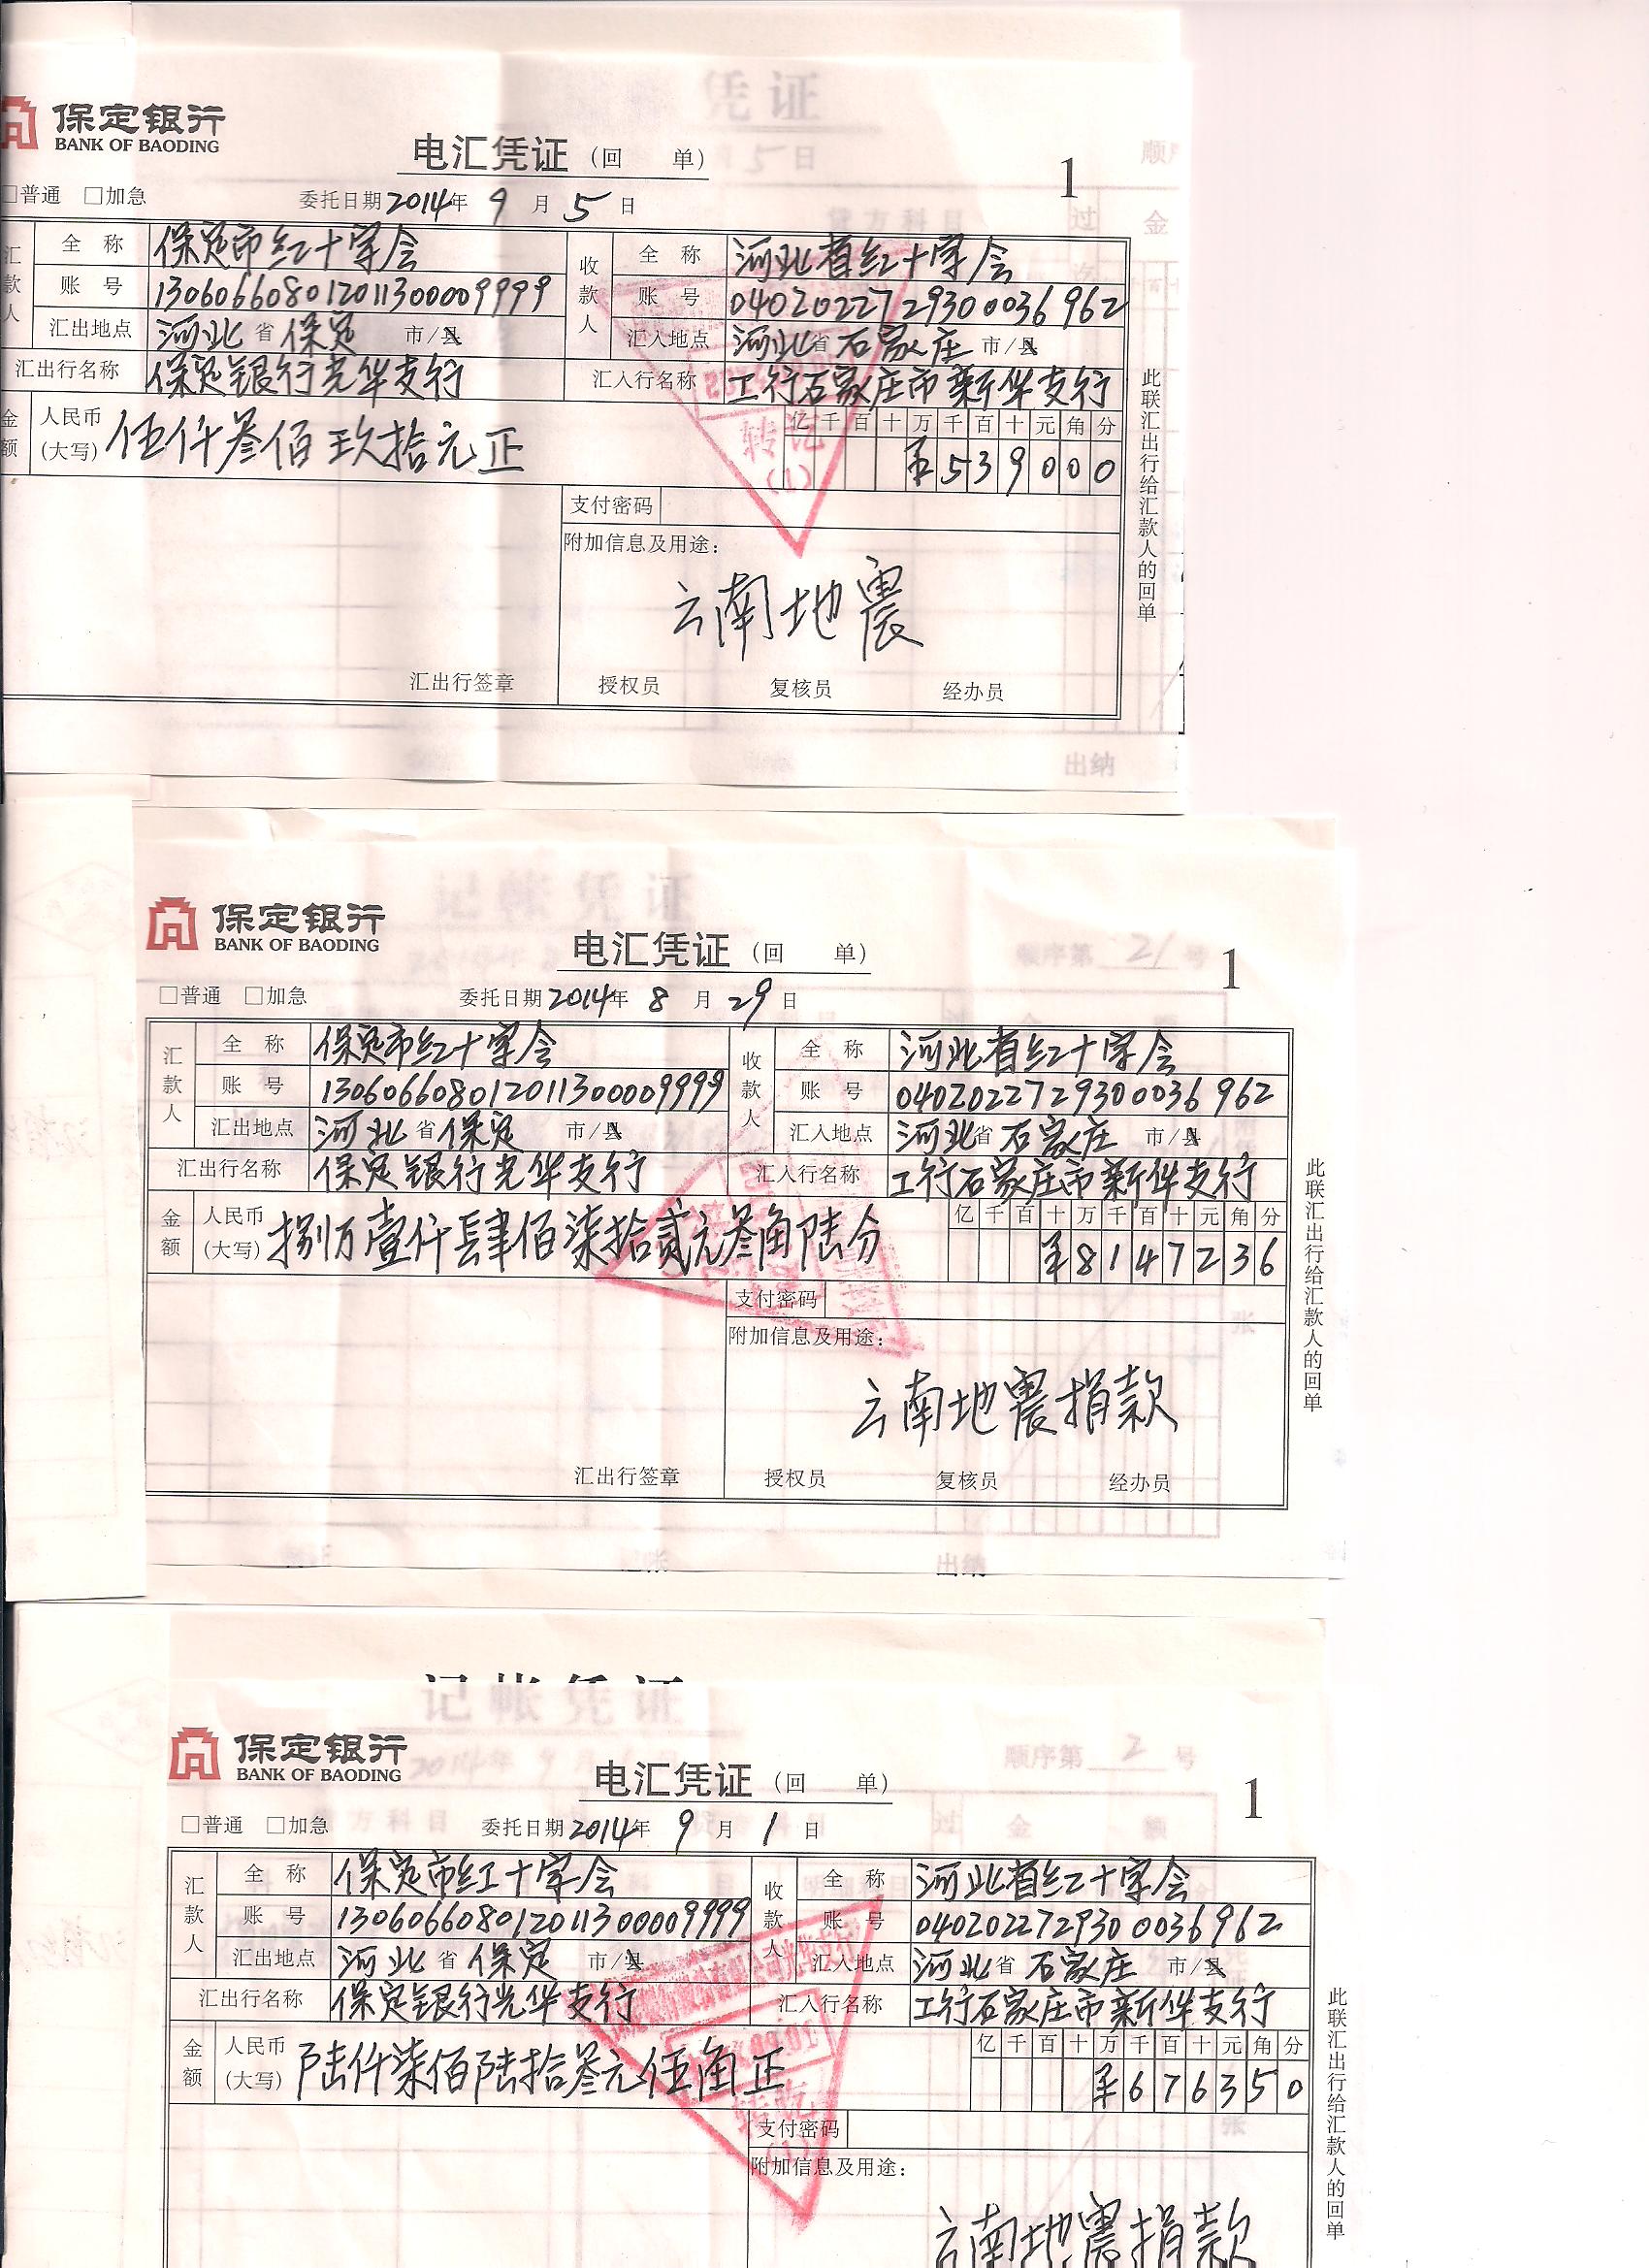 凭证
5日
顺
保定银行
BANK OF BAODING
电汇凭证（回 单）
1
□普通 □加急 委托日期2014年9月5日
贷方科目 过 金
汇款人 全称 保定市红十字会 收款人 全称 河北省红十字会
账号 130606608012011300009999 账号 0402022729300036962
汇出地点 河北省保定市/县 汇入地点 河北省石家庄市/县
汇出行名称 保定银行光华支行 汇入行名称 工行石家庄市新华支行
金额 人民币(大写) 伍仟叁佰玖拾元正 亿千百十万千百十元角分
¥539000
转讫
(1)
支付密码
附加信息及用途：
云南地震
汇出行签章 授权员 复核员 经办员
此联汇出行给汇款人的回单
出纳
记帐凭证
保定银行
BANK OF BAODING
电汇凭证（回 单）
顺序第21号
1
□普通 □加急 委托日期2014年8月29日
汇款人 全称 保定市红十字会 收款人 全称 河北省红十字会
账号 130606608012011300009999 账号 0402022729300036962
汇出地点 河北省保定市/县 汇入地点 河北省石家庄市/县
汇出行名称 保定银行光华支行 汇入行名称 工行石家庄市新华支行
金额 人民币(大写) 捌万壹仟肆佰柒拾贰元叁角陆分 亿千百十万千百十元角分
¥8147236
支付密码
张
附加信息及用途：
云南地震捐款
汇出行签章 授权员 复核员 经办员
此联汇出行给汇款人的回单
记帐 出纳
记帐凭证
保定银行
BANK OF BAODING
2014年9月
顺序第2号
电汇凭证（回 单）
1
□普通 □加急 委托日期2014年9月1日
方科目 过 金额
汇款人 全称 保定市红十字会 收款人 全称 河北省红十字会
账号 130606608012011300009999 账号 0402022729300036962
汇出地点 河北省保定市/县 汇入地点 河北省石家庄市/县
汇出行名称 保定银行光华支行 汇入行名称 工行石家庄市新华支行
金额 人民币(大写) 陆仟柒佰陆拾叁元伍角正 亿千百十万千百十元角分
¥676350
转讫
(1)
支付密码
张
附加信息及用途：
云南地震捐款
此联汇出行给汇款人的回单